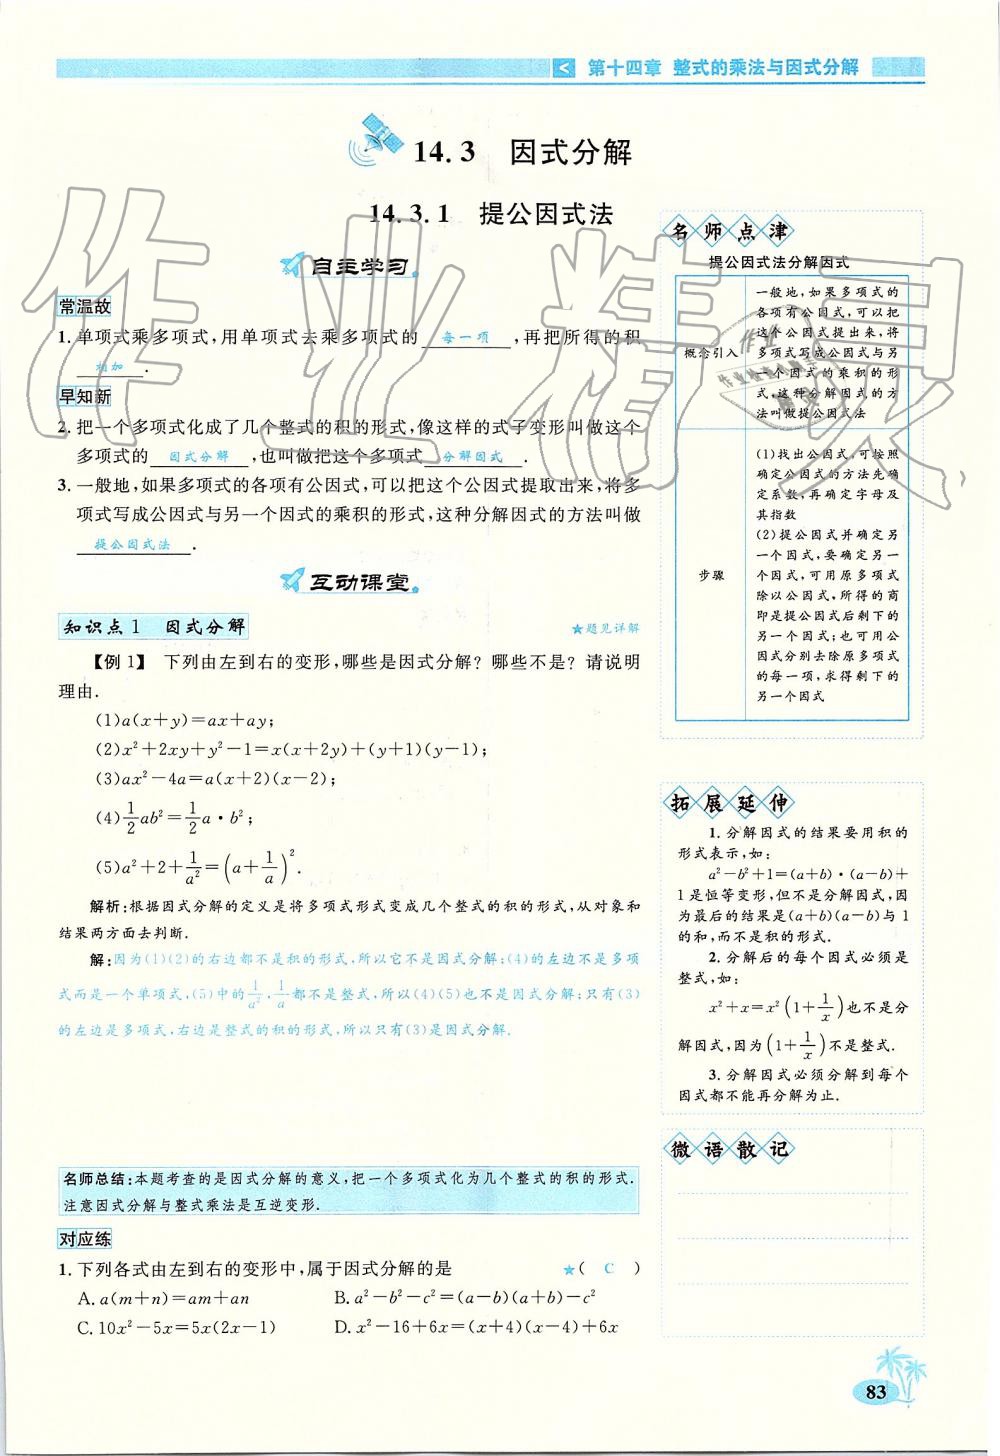 第十四章 整式的乘法与因式分解
14.3 因式分解
14.3.1 提公因式法
自主学习
常温故
1. 单项式乘多项式,用单项式去乘多项式的 每一项 ,再把所得的积
相加 .
早知新
2. 把一个多项式化成了几个整式的积的形式,像这样的式子变形叫做这个
多项式的 因式分解 ,也叫做把这个多项式 分解因式 .
3. 一般地,如果多项式的各项有公因式,可以把这个公因式提取出来,将多
项式写成公因式与另一个因式的乘积的形式,这种分解因式的方法叫做
提公因式法 .
互动课堂
知识点1 因式分解
★题见详解
【例1】 下列由左到右的变形,哪些是因式分解?哪些不是?请说明
理由.
(1)a(x+y)=ax+ay;
(2)x²+2xy+y²-1=x(x+2y)+(y+1)(y-1);
(3)ax²-4a=a(x+2)(x-2);
(4)1/2ab²=1/2a·b²;
(5)a²+2+1/a²=(a+1/a)².
解析:根据因式分解的定义是将多项式形式变成几个整式的积的形式,从对象和
结果两方面去判断.
解:因为(1)(2)的右边都不是积的形式,所以它不是因式分解;(4)的左边不是多项
式而是一个单项式,(5)中的1/a²,1/a都不是整式,所以(4)(5)也不是因式分解;只有(3)
的左边是多项式,右边是整式的积的形式,所以只有(3)是因式分解.
名师总结:本题考查的是因式分解的意义,把一个多项式化为几个整式的积的形式.
注意因式分解与整式乘法是互逆变形.
对应练
1. 下列各式由左到右的变形中,属于因式分解的是 ★( C )
A. a(m+n)=am+an B. a²-b²-c²=(a-b)(a+b)-c²
C. 10x²-5x=5x(2x-1) D. x²-16+6x=(x+4)(x-4)+6x
名师点津
提公因式法分解因式
概念引入
一般地,如果多项式的
各项有公因式,可以把
这个公因式提出来,将
多项式写成公因式与另
一个因式的乘积的形
式,这种分解因式的方
法叫做提公因式法
步骤
(1)找出公因式,可按照
确定公因式的方法先确
定系数,再确定字母及
其指数
(2)提公因式并确定另
一个因式,要确定另一
个因式,可用原多项式
除以公因式,所得的商
即是提公因式后剩下的
另一个因式;也可用公
因式分别去除原多项式
的每一项,求得剩下的
另一个因式
拓展延伸
1. 分解因式的结果要用积的
形式表示,如:
a²-b²+1=(a+b)·(a-b)+
1是恒等变形,但不是分解因式,因
为最后的结果是(a+b)(a-b)与1
的和,而不是积的形式.
2. 分解后的每个因式必须是
整式,如:
x²+x=x²(1+1/x)也不是分
解因式,因为(1+1/x)不是整式.
3. 分解因式必须分解到每个
因式都不能再分解为止.
微语散记
83
作业精灵